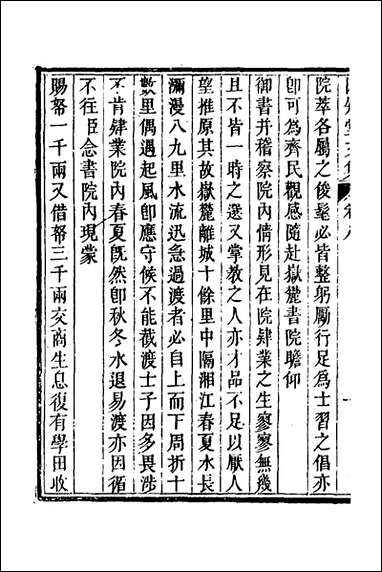 院萃各屬之俊髦必皆整躬厲行足為士習之倡亦
卽可為齊民觀感隨赴嶽麓書院瞻仰
御書并稽察院內情形見在院肄業之生寥寥無幾
且不皆一時之選又掌教之人亦才品不足以厭人
望推原其故嶽麓離城十餘里中隔湘江春夏水長
瀰漫八九里水流迅急過渡者必自上而下周折十
數里偶遇起風卽應守候不能截渡士子因多畏涉
不肯肄業院內春夏旣然卽秋冬水退易渡亦因循
不往臣念書院內現蒙
賜帑一千兩又借帑三千兩交商生息復有學田收